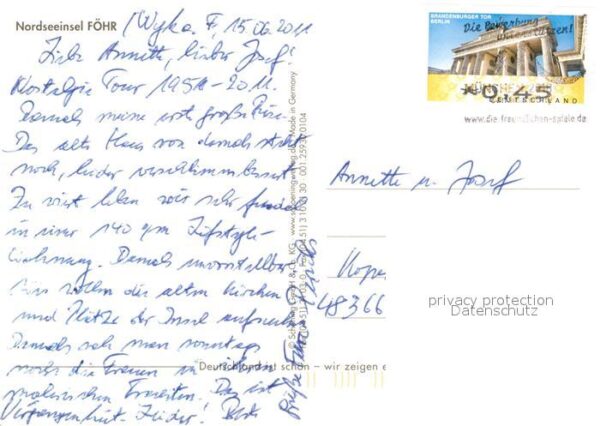 Nordseeinsel FÖHR
Wyk a. F, 15.06.2011
Liebe Annette, lieber Josef!
Nostalgie Tour 1951-2011.
Damals meine erst große
Das alte Haus von damals steht
noch, leider verschlimmbessert
Zu viert leben wir sehr
in einer 140 qm Lifestyle-
Wohnung. Damals unvorstellbar
wollen die alten Kirchen
und Plätze der Insel aufsuchen
Damals sah man sonntags
noch die Frauen in ihren
malerischen Trachten. Das ist
Vergangenheit - Leider! Beste
Grüße
Deutschland ist schön – wir zeigen e
www.schoening-verlag.de Made in Germany
BRANDENBURGER TOR
BERLIN
Die Bewerbung
unterstützen!
MÜNCHEN
*0,45
DEUTSCHLAND
www.die-freundlichen-spiele.de
Annette u. Josef
Kope
48366
privacy protection
Datenschutz